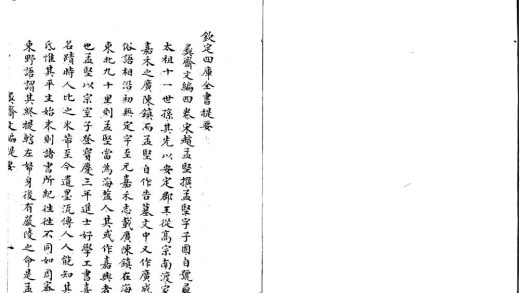 欽定四庫全書提要
彝齋文編四卷宋趙孟堅撰孟堅字子固自號彝
太祖十一世孫其先以安定郡王從高宗南渡家
嘉禾之廣陳鎮而孟堅自作告墓文中又作廣成
俗語相沿初無定字至元嘉禾志載廣陳鎮在海
東北九十里則孟堅當為海鹽人其或作嘉興者
也孟堅以宗室子登寶慶三年進士好學工書喜
名蹟時人比之米芾至今遺墨流傳人人能知其
氏惟其平生始末則諸書所紀往往不同如周密
東野語謂其終提轄左帑身後有嚴陵之命是孟
彝齋文編提要